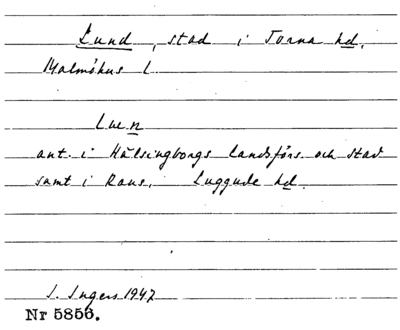 Lund, stad i Torna hd,
Malmöhus l
Lu:n
ant. i Hälsingborgs landsförs. och stad
samt i Raus, Luggude hd.
I. Ingers 1947
Nr 5856.